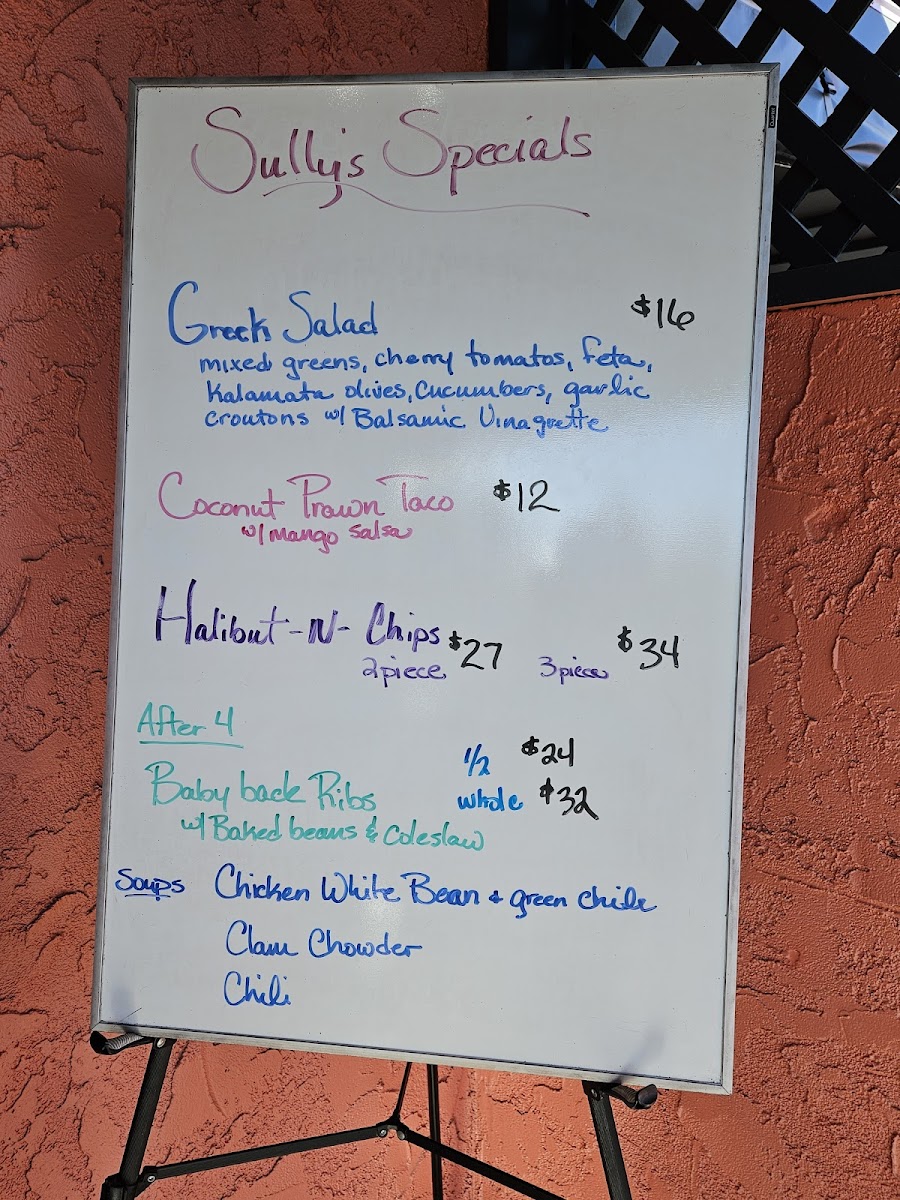 Sully's Specials
Greek Salad $16
mixed greens, cherry tomatos, feta,
Kalamata olives, Cucumbers, garlic
croutons w/ Balsamic Vinagrette
Coconut Prawn Taco $12
w/ mango salsa
Halibut-N-Chips
2 piece $27 3 piece $34
After 4
1/2 $24
Baby back Ribs whole $32
w/ Baked beans & coleslaw
Soups Chicken White Bean & green chile
Clam Chowder
Chili